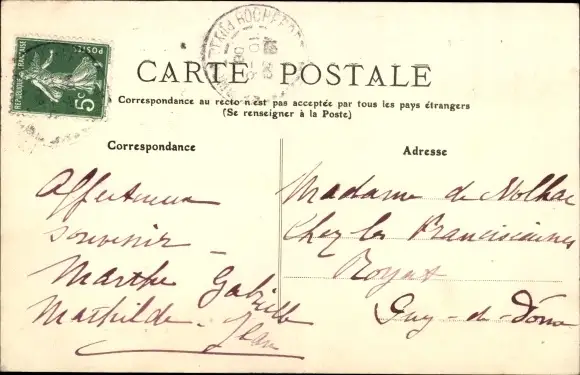 REPUBLIQUE FRANÇAISE
POSTES
5c
CARTE POSTALE
Correspondance au recto n'est pas acceptée par tous les pays étrangers
(Se renseigner à la Poste)
Correspondance
Affectueux
souvenir
Marthe Gabrielle
Mathilde - Jean
Adresse
Madame de Nolhac
Chez les Franciscaines
Royat
Puy-de-Dôme